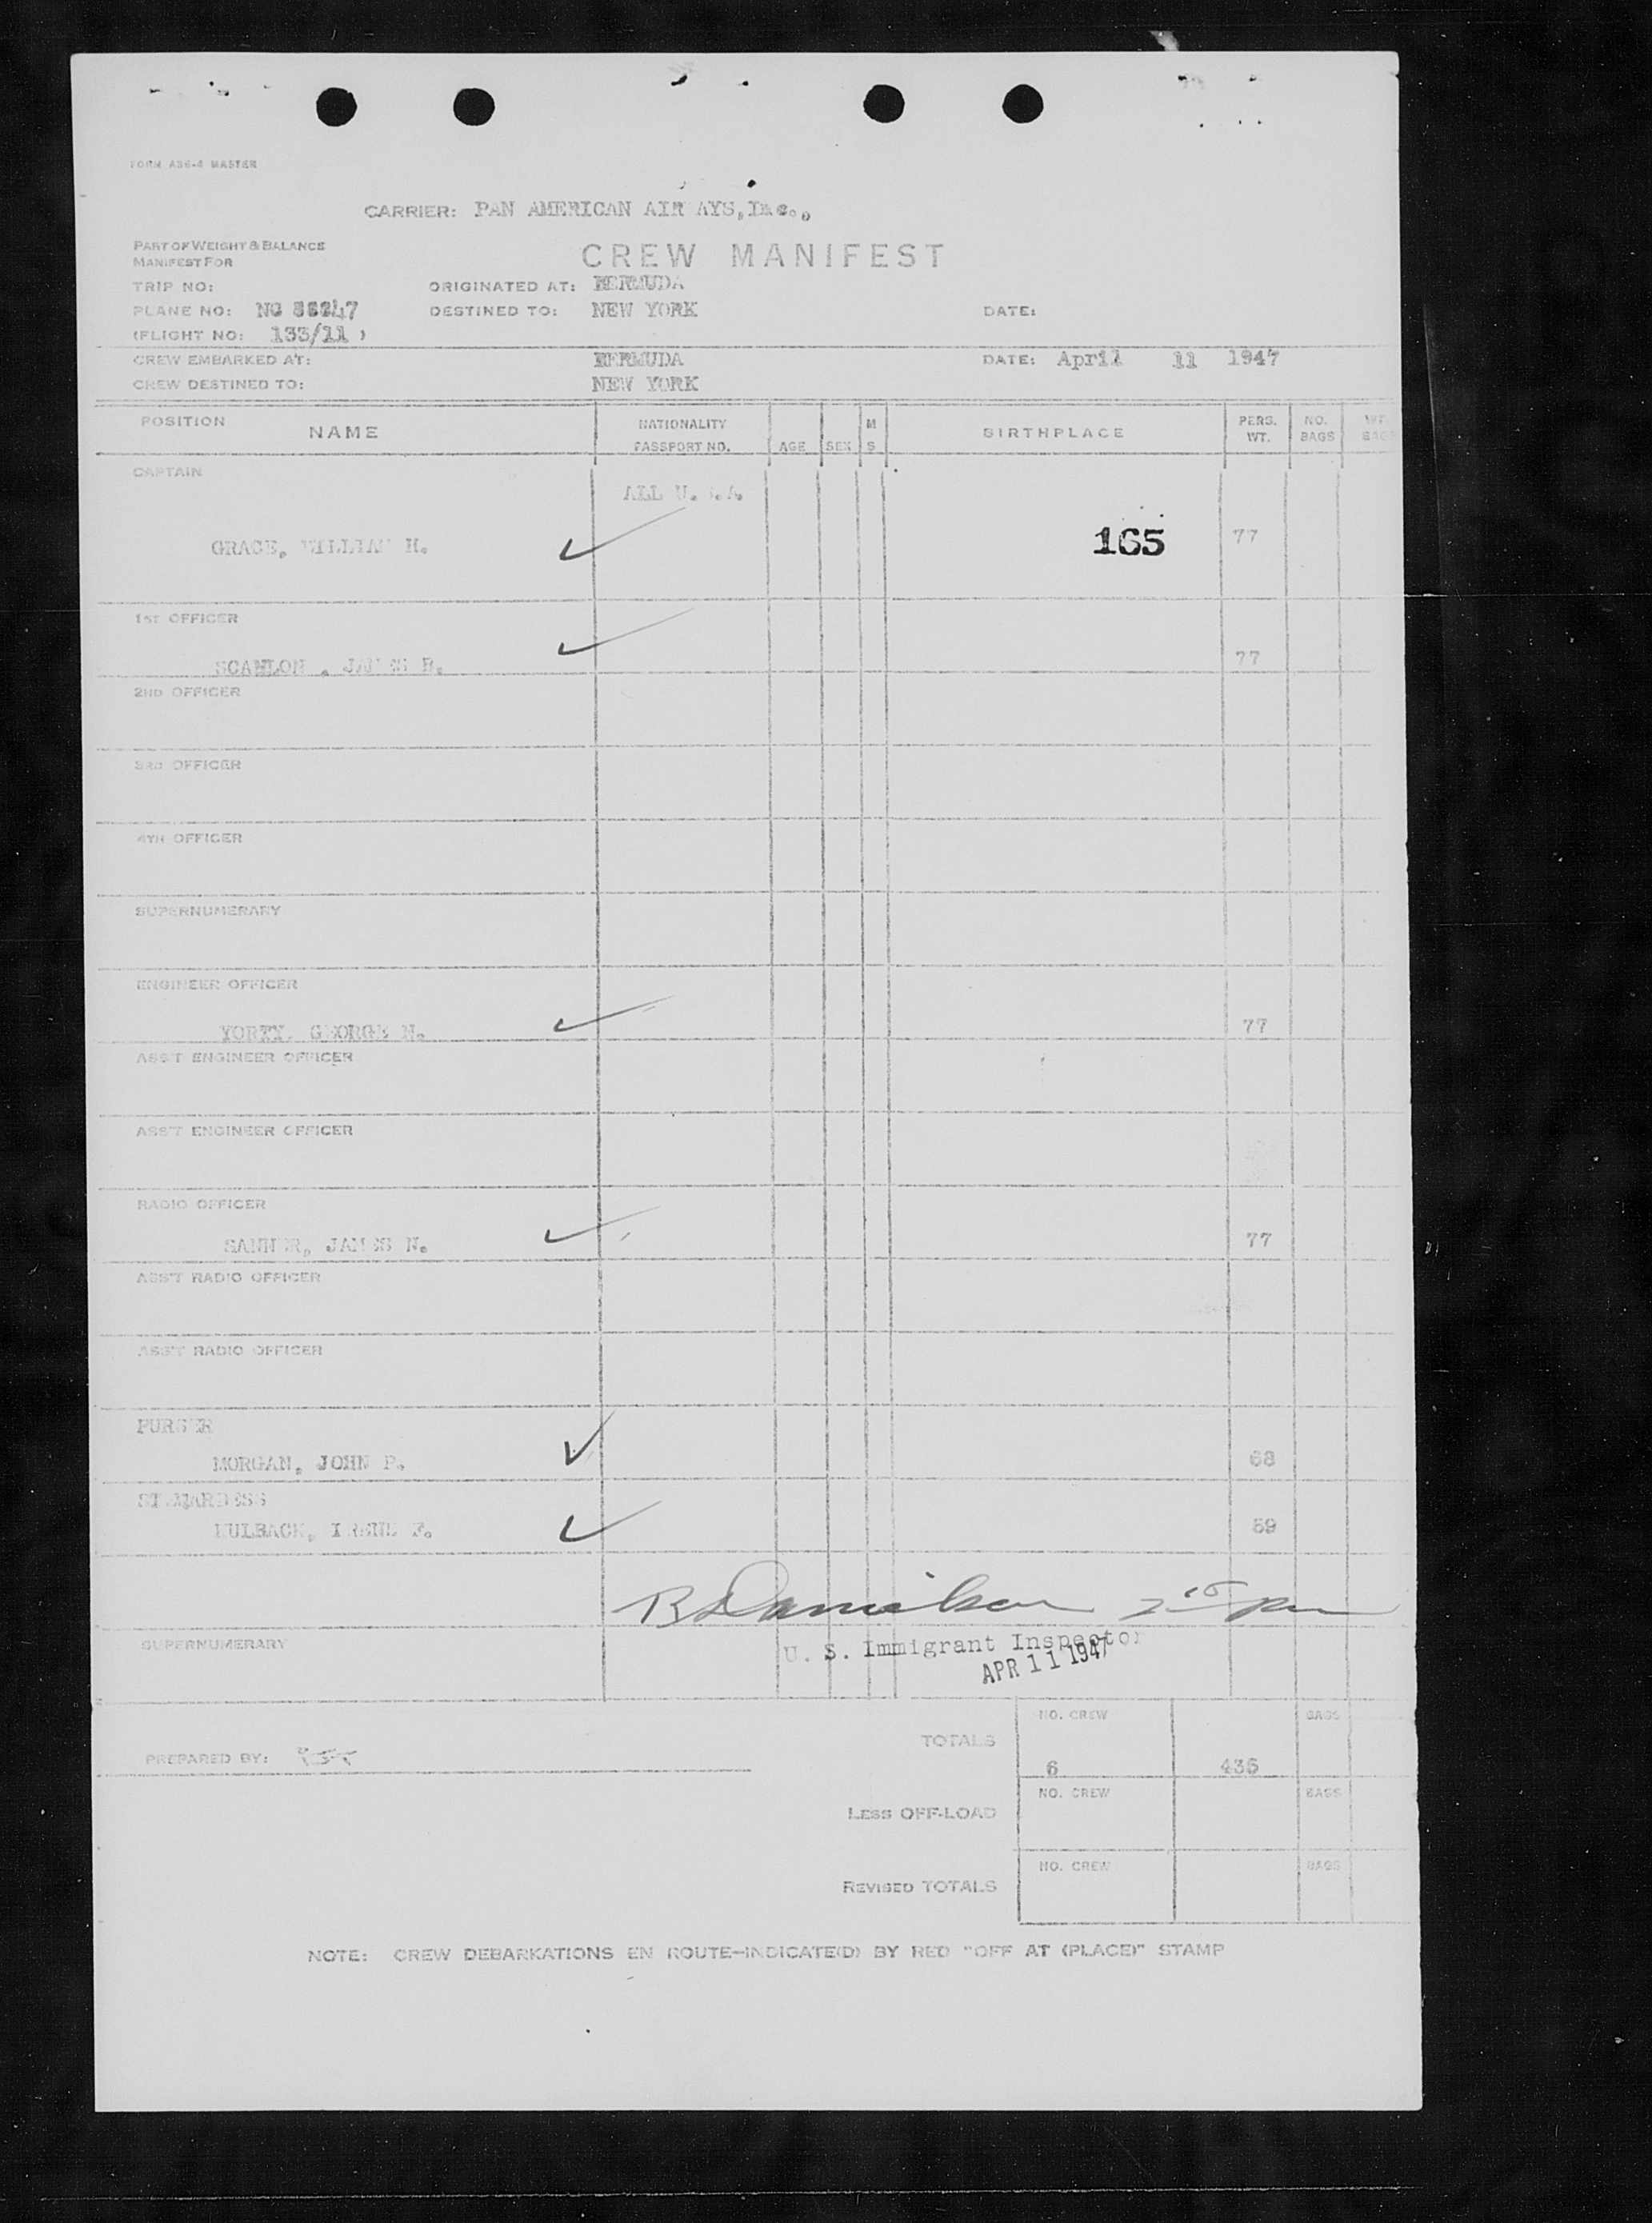 FORM A36-4 MASTER
CARRIER: PAN AMERICAN AIR AYS, Inc.,
PART OF WEIGHT & BALANCE
MANIFEST FOR
CREW MANIFEST
TRIP NO: ORIGINATED AT: BERMUDA
PLANE NO: NC DESTINED TO: NEW YORK DATE:
(FLIGHT NO: 133/11 )
CREW EMBARKED AT: BERMUDA DATE: April 11 1947
CREW DESTINED TO: NEW YORK
POSITION NAME NATIONALITY PASSPORT NO. AGE SEX M S BIRTHPLACE PERS. WT. NO. BAGS WT. BAGS
CAPTAIN
ALL U.S.A.
GRACE, WILLIAM H. 165 77
1ST OFFICER
SCANLON , JAMES 77
2ND OFFICER
3RD OFFICER
4TH OFFICER
SUPERNUMERARY
ENGINEER OFFICER
GEORGE 77
ASS'T ENGINEER OFFICER
ASS'T ENGINEER OFFICER
RADIO OFFICER
SANNER, JAMES N. 77
ASS'T RADIO OFFICER
ASS'T RADIO OFFICER
PURSER
MORGAN, JOHN P. 68
STEWARDESS
IRENE F. 59
2 15 pm
U. S. Immigrant Inspector
SUPERNUMERARY
APR 11 1947
TOTALS NO. CREW BAGS
PREPARED BY: 6 435
LESS OFF-LOAD NO. CREW BAGS
REVISED TOTALS NO. CREW BAGS
NOTE: CREW DEBARKATIONS EN ROUTE—INDICATE(D) BY RED "OFF AT (PLACE)" STAMP